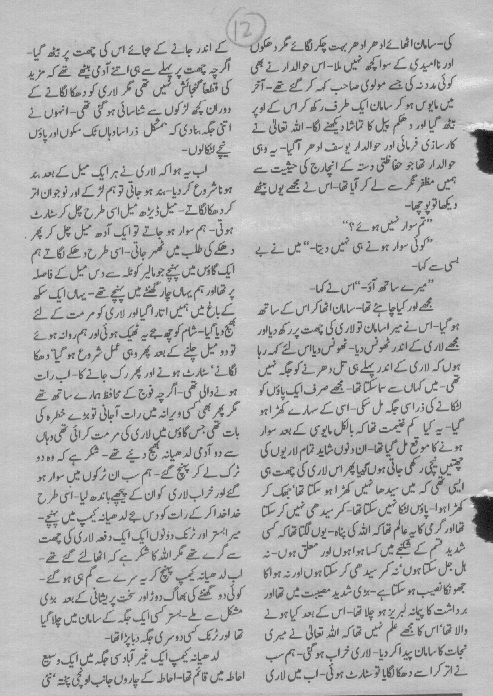 12
کی۔ سامان اٹھائے ادھر ادھر بہت چکر لگائے مگر دھکوں
اور ناامیدی کے سوا کچھ نہیں ملا۔ اس حوالدار نے بھی
کوئی مدد نہ کی جسے مولوی صاحب کہہ کر گئے تھے۔ آخر
میں مایوس ہو کر سامان ایک طرف رکھ کر اس کے اوپر
بیٹھ گیا اور دھکم پیل کا تماشا دیکھنے لگا۔ اللہ تعالیٰ نے
کارسازی فرمائی اور حوالدار یوسف ادھر آ گیا۔ یہ وہی
حوالدار تھا جو حفاظتی دستہ کے انچارج کی حیثیت سے
ہمیں مظفر نگر سے لے کر آیا تھا۔ اس نے مجھے یوں بیٹھے
دیکھا تو پوچھا۔
”تم سوار نہیں ہوئے؟“
”کوئی سوار ہونے ہی نہیں دیتا۔“ میں نے بے
بسی سے کہا۔
”میرے ساتھ آؤ۔“ اس نے کہا۔
مجھے اور کیا چاہئے تھا۔ سامان اٹھا کر اس کے ساتھ
ہو گیا۔ اس نے میرا سامان تو لاری کی چھت پر رکھ دیا اور
مجھے لاری کے اندر ٹھونس دیا۔ ٹھونس دیا اس لئے کہہ رہا
ہوں کہ لاری کے اندر پہلے ہی تل دھرنے کو جگہ نہیں
تھی۔ میں کہاں سے سما سکتا تھا۔ مجھے صرف ایک پاؤں کو
لٹکانے کی ذرا سی جگہ مل سکی۔ اسی کے سہارے کھڑا ہو
گیا۔ یہ کیا کم غنیمت تھا کہ بالکل مایوسی کے بعد سوار
ہونے کا موقع مل گیا تھا۔ ان دنوں شاید تمام لاریوں کی
چھتیں نیچی رکھی جاتی ہوں گی یا پھر اس لاری کی چھت ہی
ایسی تھی کہ میں سیدھا نہیں کھڑا ہو سکتا تھا۔ جھک کر
کھڑا ہوا۔ پاؤں لٹکا نہیں سکتا تھا۔ کمر سیدھی نہیں کر سکتا
تھا اور گرمی کا یہ عالم تھا کہ اللہ کی پناہ۔ یوں لگتا تھا کہ کسی
شدید قسم کے شکنجے میں کسا ہوا ہوں اور معلق ہوں۔ نہ
ہل جل سکتا ہوں نہ کمر سیدھی کر سکتا ہوں اور نہ ہوا کا
جھونکا نصیب ہو سکتا ہے۔ بڑی شدید مصیبت میں تھا اور
برداشت کا پیمانہ لبریز ہو چلا تھا۔ اس کے بعد کیا ہونے
والا تھا اس کا مجھے علم نہیں تھا کہ اللہ تعالیٰ نے میری
نجات کا سامان پیدا کر دیا۔ لاری خراب ہو گئی۔ ہم سب
نے اتر کر اسے دھکا لگایا تو سٹارٹ ہوئی۔ اب میں لاری
کے اندر جانے کے بجائے اس کی چھت پر بیٹھ گیا۔
اگرچہ چھت پر پہلے سے ہی اتنے آدمی بیٹھے تھے کہ مزید
کی قطعاً گنجائش نہیں تھی مگر لاری کو دھکا لگانے کے
دوران کچھ لڑکوں سے شناسائی ہو گئی تھی۔ انہوں نے
اتنی جگہ بنا دی کہ بمشکل ذرا سا دباؤں تک سکوں اور پاؤں
نیچے لٹکا لوں۔
اب یہ ہوا کہ لاری نے ہر ایک میل کے بعد بند
ہونا شروع کر دیا۔ بند ہو جاتی تو ہم لڑکے اور نوجوان اتر
کر دھکا لگاتے۔ میل ڈیڑھ میل اسی طرح چل کر سٹارٹ
ہوتی۔ ہم سوار ہو جاتے تو ایک آدھ میل چل کر پھر
دھکے کی طلب میں ٹھہر جاتی۔ اسی طرح دھکے لگاتے ہم
ایک گاؤں میں پہنچے جو مالیر کوٹلہ سے دس میل کے فاصلہ
پر تھا اور ہم یہاں چار گھنٹے میں پہنچے تھے۔ یہاں ایک سکھ
کے باغ میں ہمیں اتارا گیا اور لاری کو مرمت کے لئے
بھیج دیا گیا۔ شام کو چھ بجے یہ ٹھیک ہوئی اور ہم روانہ ہوئے
تو دو میل چلنے کے بعد پھر وہی عمل شروع ہو گیا، دھکا
لگانے، سٹارٹ ہونے اور پھر رک جانے کا۔ اب رات
ہونے والی تھی۔ اگرچہ فوج کے محافظ ہمارے ساتھ تھے
مگر پھر بھی کسی ویرانے میں رات آ جاتی تو بڑے خطرہ کی
بات تھی، جس گاؤں میں لاری کی مرمت کرائی تھی وہاں
سے دو آدمی لدھیانہ بھیج دیئے تھے۔ شکر ہے کہ وہ دو
ٹرک لے کر پہنچ گئے۔ ہم سب ان ٹرکوں میں سوار ہو
گئے اور خراب لاری کو ان کے پیچھے باندھ لیا۔ اسی طرح
خدا خدا کر کے رات کو دس بجے لدھیانہ کیمپ میں پہنچے۔
میرا بستر اور ٹرنک دونوں ایک ایک دفعہ لاری کی چھت
سے گرے تھے مگر اللہ کا شکر ہے کہ اٹھا لئے گئے تھے۔
اب لدھیانہ کیمپ پہنچ کر یہ سرے سے گم ہی ہو گئے۔
کوئی دو گھنٹے کی بھاگ دوڑ اور سخت پریشانی کے بعد بڑی
مشکل سے ملے۔ بستر کسی ایک جگہ کے سامان میں چلا گیا
تھا اور ٹرنک کسی دوسری جگہ دبا پڑا تھا۔
لدھیانہ کیمپ ایک غیر آباد سی جگہ میں ایک وسیع
احاطہ میں قائم تھا۔ احاطہ کے چاروں جانب اونچی پختہ نئی